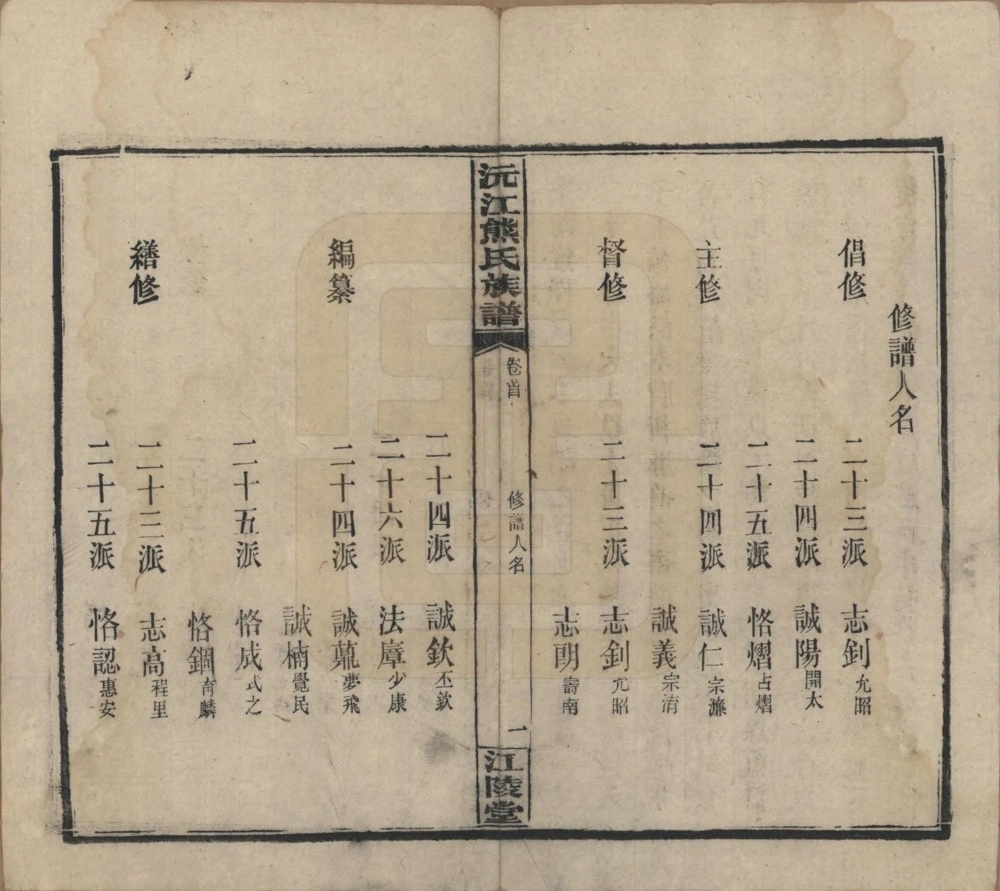 修譜人名
倡修　二十三派　志釗允昭
二十四派　誠陽開太
二十五派　恪熠占熠
主修　二十四派　誠仁宗濂
誠義宗清
督修　二十三派　志釗允昭
志朗壽南
沅江熊氏族譜　卷首　修譜人名　一　江陵堂
二十四派　誠欽丕欽
二十六派　法廑少康
編纂　二十四派　誠夢飛
誠楠覺民
二十五派　恪成式之
恪鋼南麟
繕修　二十三派　志高程里
二十五派　恪認惠安